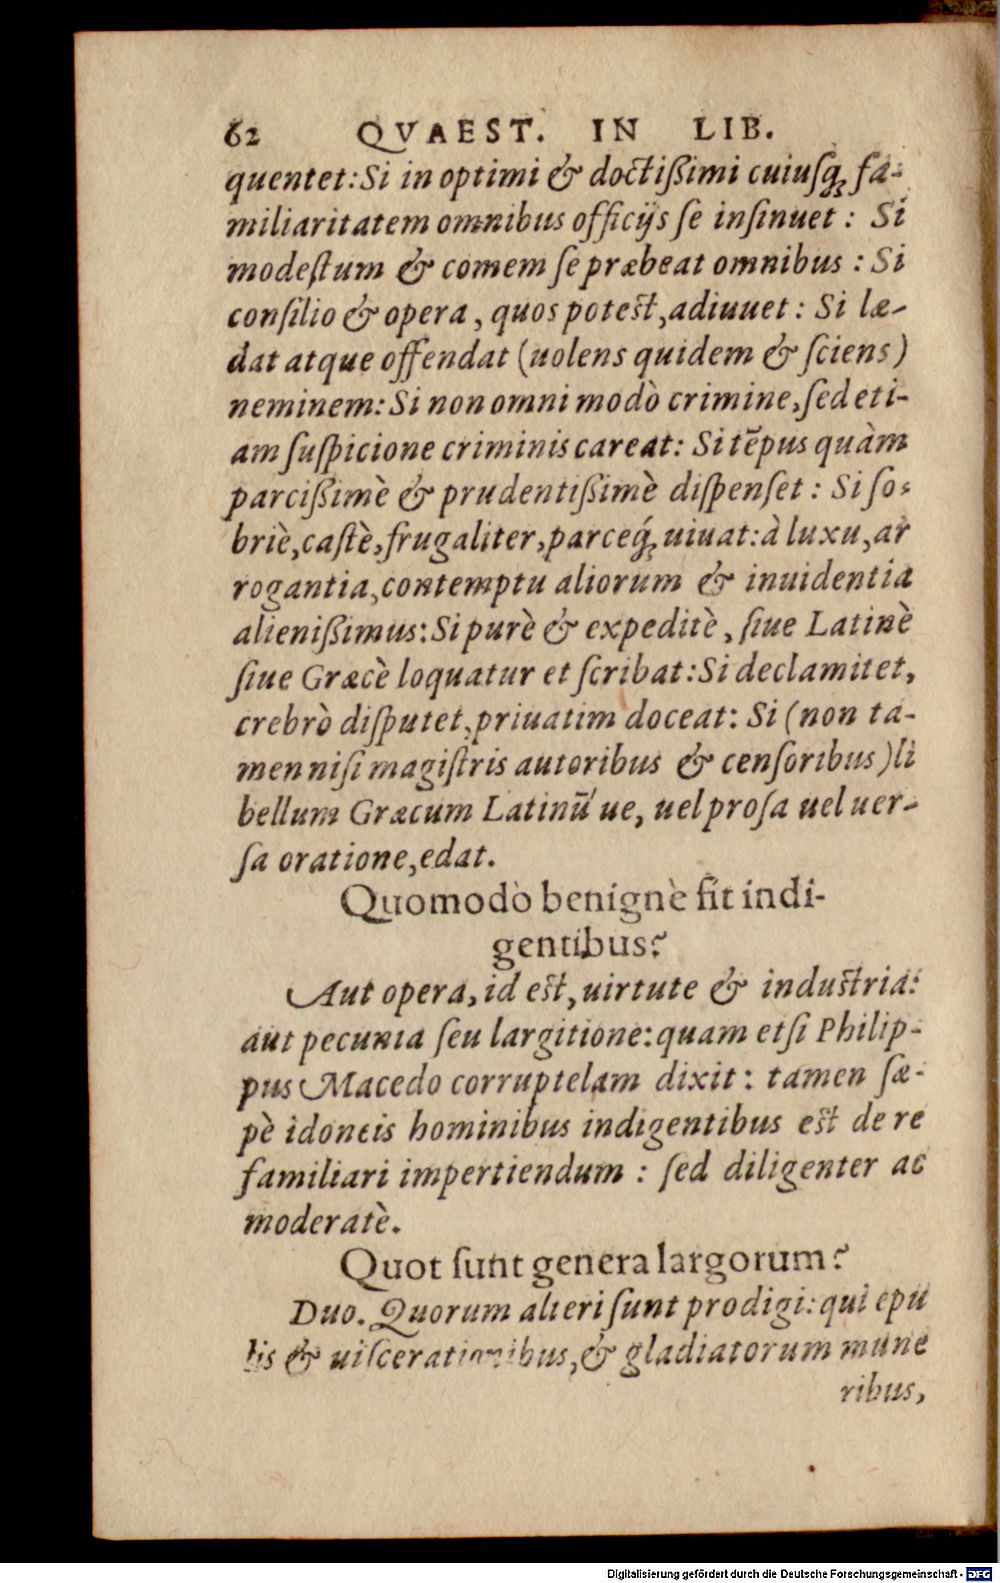 62 QVAEST. IN LIB.
quentet: Si in optimi & doctißimi cuiuſq; fa-
miliaritatem omnibus officijs ſe inſinuet : Si
modeſtum & comem ſe præbeat omnibus : Si
conſilio & opera, quos poteſt, adiuuet : Si læ-
dat atque offendat (uolens quidem & ſciens)
neminem: Si non omni modò crimine, ſed eti-
am ſuſpicione criminis careat: Si tẽpus quàm
parcißimè & prudentißimè diſpenſet : Si ſo-
briè, caſtè, frugaliter, parceq́; uiuat: à luxu, ar
rogantia, contemptu aliorum & inuidentia
alienißimus: Si purè & expeditè, ſiue Latinè
ſiue Græcè loquatur et ſcribat: Si declamitet,
crebrò diſputet, priuatim doceat: Si (non ta-
men niſi magiſtris autoribus & cenſoribus) li
bellum Græcum Latinū́ ue, uel proſa uel uer-
ſa oratione, edat.
Quomodò benignè ſit indi-
gentibus?
Aut opera, id eſt, uirtute & induſtria:
aut pecunia ſeu largitione: quam etſi Philip-
pus Macedo corruptelam dixit : tamen ſæ-
pè idoneis hominibus indigentibus eſt de re
familiari impertiendum : ſed diligenter ac
moderatè.
Quot ſunt genera largorum?
Duo. Quorum alteri ſunt prodigi: qui epu
lis & uiſcerationibus, & gladiatorum mune
ribus,
Digitalisierung gefördert durch die Deutsche Forschungsgemeinschaft - DFG